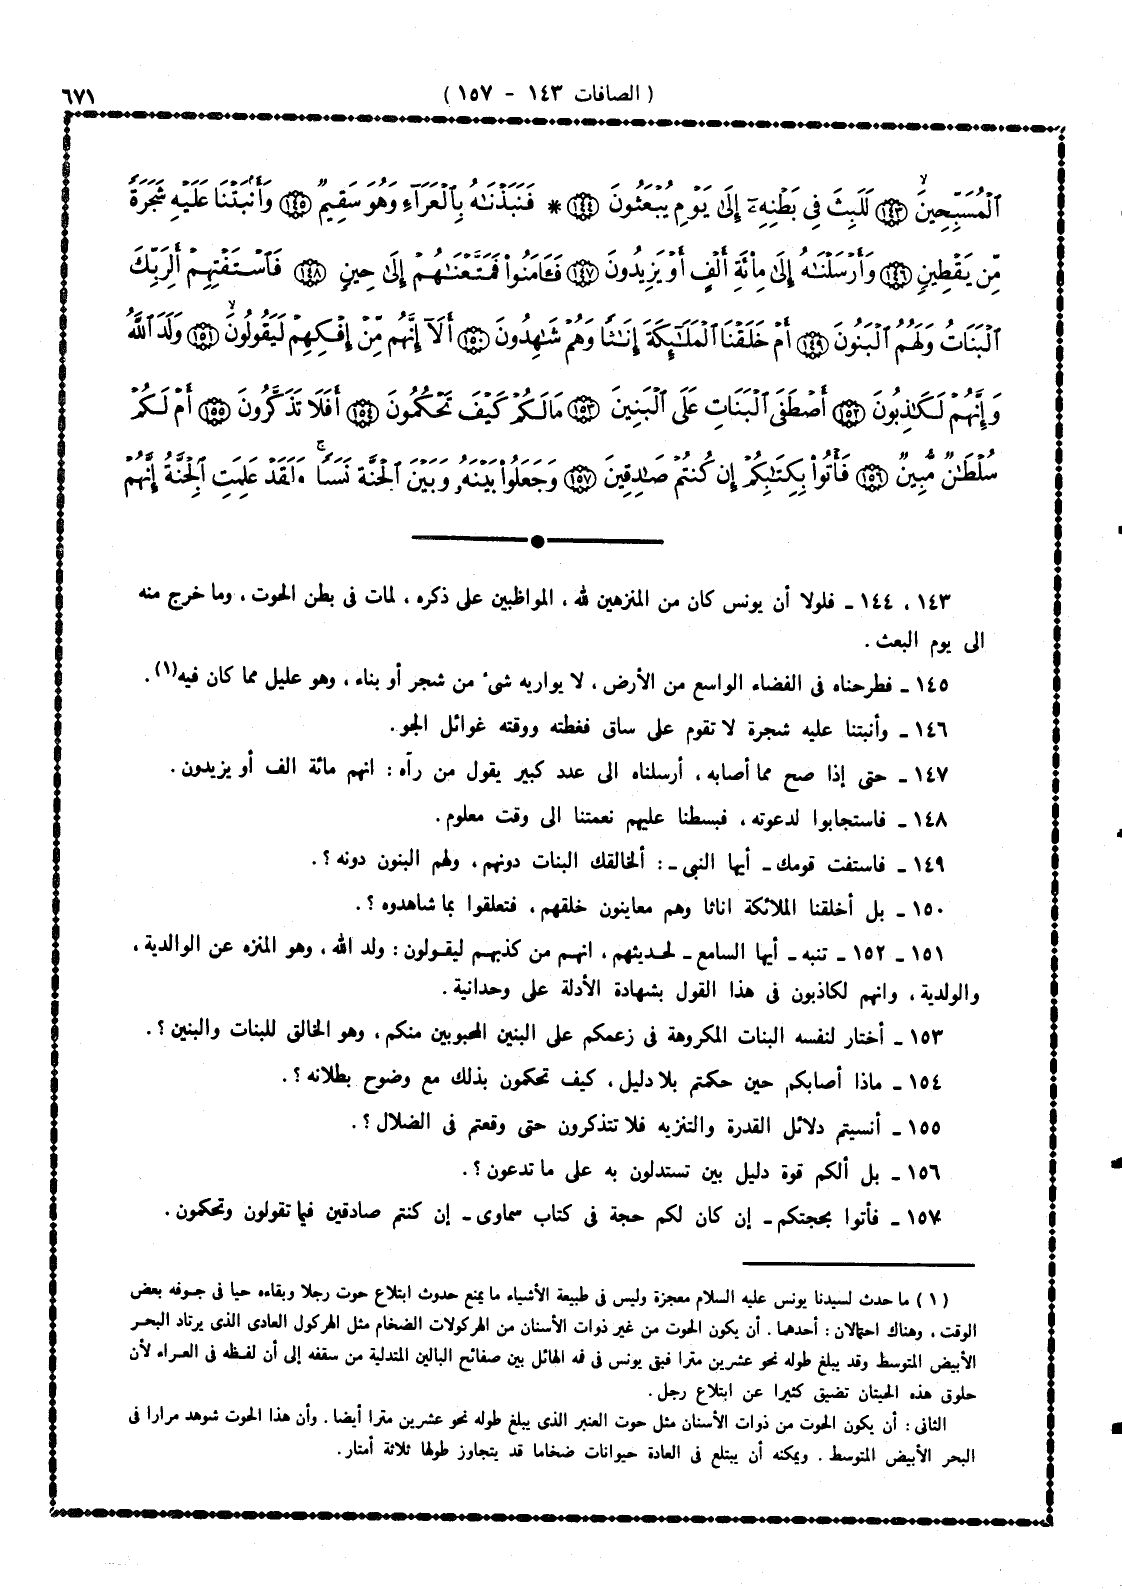 ٦٧١
( الصافات ١٤٣ - ١٥٧ )
ٱلْمُسَبِّحِينَ ۙ ١٤٣ لَلَبِثَ فِي بَطْنِهِۦٓ إِلَىٰ يَوْمِ يُبْعَثُونَ ١٤٤ * فَنَبَذْنَـٰهُ بِٱلْعَرَآءِ وَهُوَ سَقِيمٌ ١٤٥ وَأَنۢبَتْنَا عَلَيْهِ شَجَرَةً
مِّن يَقْطِينٍ ١٤٦ وَأَرْسَلْنَـٰهُ إِلَىٰ مِا۟ئَةِ أَلْفٍ أَوْ يَزِيدُونَ ١٤٧ فَـَٔامَنُوا۟ فَمَتَّعْنَـٰهُمْ إِلَىٰ حِينٍ ١٤٨ فَٱسْتَفْتِهِمْ أَلِرَبِّكَ
ٱلْبَنَاتُ وَلَهُمُ ٱلْبَنُونَ ١٤٩ أَمْ خَلَقْنَا ٱلْمَلَـٰٓئِكَةَ إِنَـٰثًا وَهُمْ شَـٰهِدُونَ ١٥٠ أَلَآ إِنَّهُم مِّنْ إِفْكِهِمْ لَيَقُولُونَ ۙ ١٥١ وَلَدَ ٱللَّهُ
وَإِنَّهُمْ لَكَـٰذِبُونَ ١٥٢ أَصْطَفَى ٱلْبَنَاتِ عَلَى ٱلْبَنِينَ ١٥٣ مَا لَكُمْ كَيْفَ تَحْكُمُونَ ١٥٤ أَفَلَا تَذَكَّرُونَ ١٥٥ أَمْ لَكُمْ
سُلْطَـٰنٌ مُّبِينٌ ١٥٦ فَأْتُوا۟ بِكِتَـٰبِكُمْ إِن كُنتُمْ صَـٰدِقِينَ ١٥٧ وَجَعَلُوا۟ بَيْنَهُۥ وَبَيْنَ ٱلْجِنَّةِ نَسَبًا ۚ وَلَقَدْ عَلِمَتِ ٱلْجِنَّةُ إِنَّهُمْ
١٤٣ ، ١٤٤ ـ فلولا أن يونس كان من المنزهين لله ، المواظبين على ذكره ، لمات فى بطن الحوت ، وما خرج منه
الى يوم البعث .
١٤٥ ـ فطرحناه فى الفضاء الواسع من الأرض ، لا يواريه شىء من شجر أو بناء ، وهو عليل مما كان فيه(١) .
١٤٦ ـ وأنبتنا عليه شجرة لا تقوم على ساق فغطته ووقته غوائل الجو .
١٤٧ ـ حتى إذا صح مما أصابه ، أرسلناه الى عدد كبير يقول من رآه : انهم مائة الف أو يزيدون .
١٤٨ ـ فاستجابوا لدعوته ، فبسطنا عليهم نعمتنا الى وقت معلوم .
١٤٩ ـ فاستفت قومك ـ أيها النبى ـ : ألخالقك البنات دونهم ، ولهم البنون دونه ؟ .
١٥٠ ـ بل أخلقنا الملائكة اناثا وهم معاينون خلقهم ، فتعلقوا بما شاهدوه ؟ .
١٥١ ـ ١٥٢ ـ تنبه ـ أيها السامع ـ لحديثهم ، انهم من كذبهم ليقولون : ولد الله ، وهو المنزه عن الوالدية ،
والولدية ، وانهم لكاذبون فى هذا القول بشهادة الأدلة على وحدانية .
١٥٣ ـ أختار لنفسه البنات المكروهة فى زعمكم على البنين المحبوبين منكم ، وهو الخالق للبنات والبنين ؟ .
١٥٤ ـ ماذا أصابكم حين حكمتم بلا دليل ، كيف تحكمون بذلك مع وضوح بطلانه ؟ .
١٥٥ ـ أنسيتم دلائل القدرة والتنزيه فلا تتذكرون حتى وقعتم فى الضلال ؟ .
١٥٦ ـ بل ألكم قوة دليل بين تستدلون به على ما تدعون ؟ .
١٥٧ ـ فأتوا بحجتكم ـ إن كان لكم حجة فى كتاب سماوى ـ إن كنتم صادقين فيما تقولون وتحكمون .
( ١ ) ما حدث لسيدنا يونس عليه السلام معجزة وليس فى طبيعة الأشياء ما يمنع حدوث ابتلاع حوت رجلا وبقاءه حيا فى جوفه بعض
الوقت ، وهناك احتمالان : أحدهما . أن يكون الحوت من غير ذوات الأسنان من الهركولات الضخام مثل الهركول العادى الذى يرتاد البحر
الأبيض المتوسط وقد يبلغ طوله نحو عشرين مترا فبقى يونس فى فه الهائل بين صفائح البالين المتدلية من سقفه إلى أن لفظه فى العراء لأن
حلوق هذه الحيتان تضيق كثيرا عن ابتلاع رجل .
الثانى : أن يكون الحوت من ذوات الأسنان مثل حوت العنبر الذى يبلغ طوله نحو عشرين مترا أيضا . وأن هذا الحوت شوهد مرارا فى
البحر الأبيض المتوسط . ويمكنه أن يبتلع فى العادة حيوانات ضخاما قد يتجاوز طولها ثلاثة أمتار .